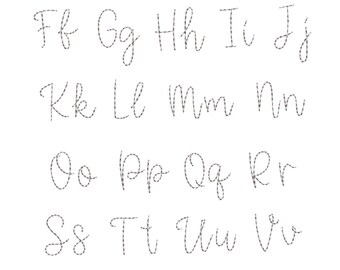 Ff Gg Hh Ii Jj
Kk Ll Mm Nn
Oo Pp Qq Rr
Ss Tt Uu Vv